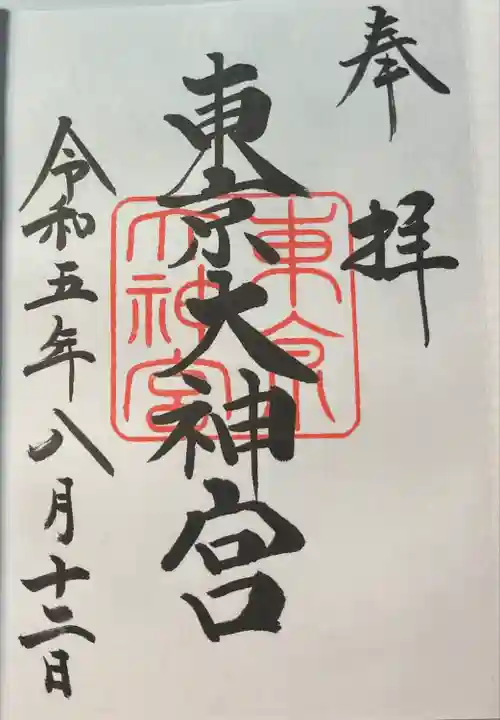 奉拝
東京大神宮
東京大神宮
令和五年八月十二日